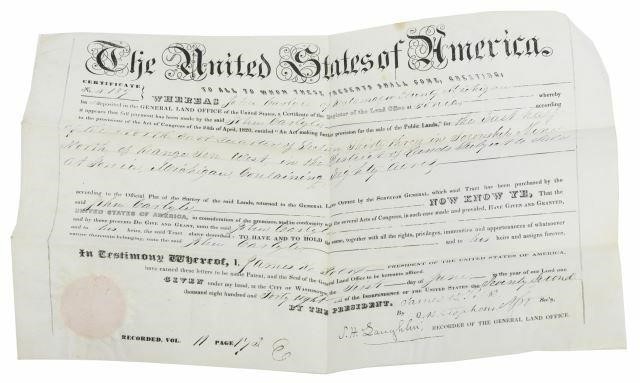 The United States of America,
CERTIFICATE
No.
TO ALL TO WHOM THESE PRESENTS SHALL COME, GREETING:
WHEREAS John Carlyle of Kalamazoo County Michigan whereby
ha deposited in the GENERAL LAND OFFICE of the United States, a Certificate of the Register of the Land Office at Ionia
it appears that full payment has been made by the said John Carlyle according
to the provisions of the Act of Congress of the 24th of April, 1820, entitled "An Act making further provision for the sale of the Public Lands," for the East half
of the North East Quarter of Section Thirty three in Township Nine
North of Range Ten West in the District of Lands Subject to Sale
at Ionia, Michigan, Containing Eighty Acres
according to the Official Plat of the Survey of the said Lands, returned to the General Land Office by the SURVEYOR GENERAL, which said Tract has been purchased by the
said John Carlyle NOW KNOW YE, That the
UNITED STATES OF AMERICA, in consideration of the premises, and in conformity with the several Acts of Congress, in such case made and provided, HAVE GIVEN AND GRANTED,
and by these presents DO GIVE AND GRANT, unto the said John Carlyle
and to his heirs, the said Tract above described: TO HAVE AND TO HOLD the same, together with all the rights, privileges, immunities and appurtenances of whatsoever
nature thereunto belonging, unto the said John Carlyle and to his heirs and assigns forever.
In Testimony Whereof, I, James K. Polk PRESIDENT OF THE UNITED STATES OF AMERICA,
have caused these letters to be made Patent, and the Seal of the General Land Office to be hereunto affixed.
GIVEN under my hand, at the CITY OF WASHINGTON, the first day of June in the year of our Lord one
thousand eight hundred and forty eight and of the INDEPENDENCE OF THE UNITED STATES the Seventy Second
BY THE PRESIDENT: James K. Polk
By J. K. Stephens Sec'y.
S. H. Laughlin, RECORDER OF THE GENERAL LAND OFFICE.
RECORDED, VOL. 11 PAGE